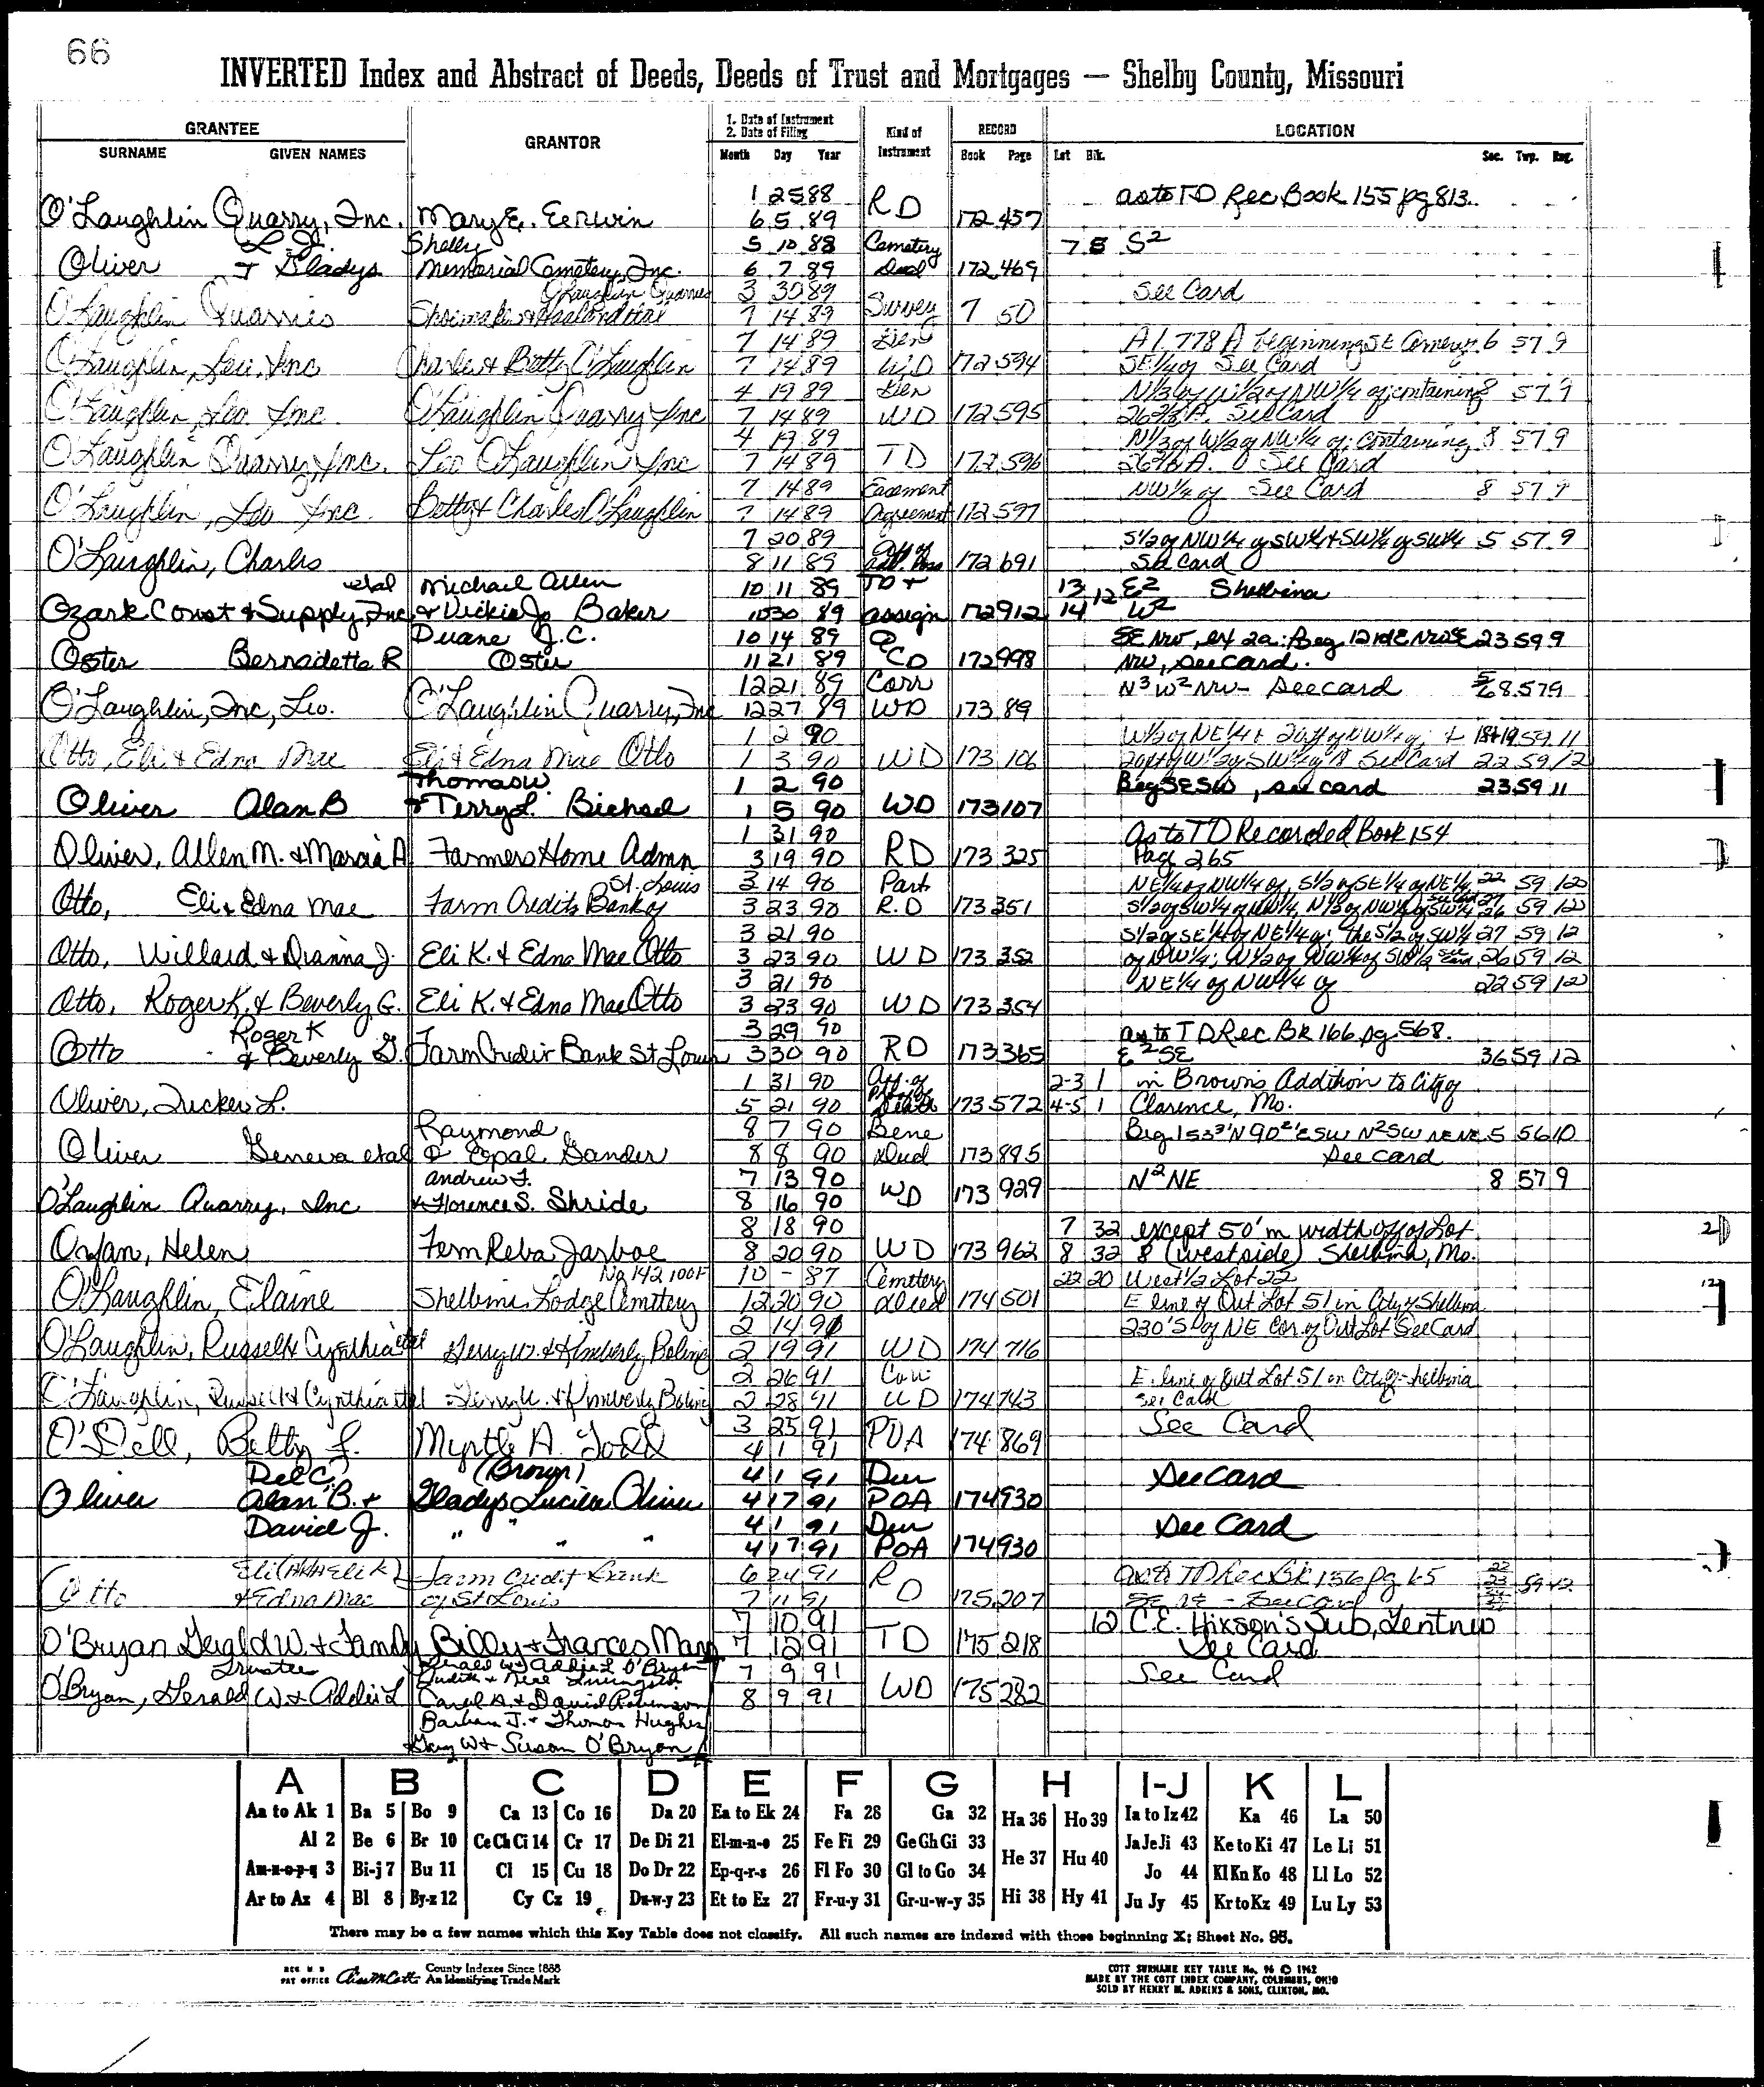 66
INVERTED Index and Abstract of Deeds, Deeds of Trust and Mortgages — Shelby County, Missouri
GRANTEE GRANTOR 1. Date of Instrument 2. Date of Filing Kind of Instrument RECORD LOCATION
SURNAME GIVEN NAMES Month Day Year Book Page Lot Blk. Sec. Twp. Rng.
1 25 88 as to TD Rec Book 155 pg 813
O'Laughlin Quarry, Inc. Mary E. Eerwin 6 5 89 RD 172 457
L. J. Shelby 5 10 88 Cemetery 7 8 S2
Oliver + Gladys Memorial Cemetery, Inc. 6 7 89 Deed 172 469
O'Laughlin Quarries 3 30 89 See Card
O'Laughlin Quarries Shoemaker & Haaland 7 14 89 Survey 7 50
7 14 89 Gen A 1.778 A beginning SE Corner 6 57 9
O'Laughlin, Leo, Inc Charles & Betty O'Laughlin 7 14 89 WD 172 594 SE 1/4 of See Card
4 19 89 Gen N 1/3 of W 1/2 of NW 1/4 of; containing 8 57 9
O'Laughlin, Leo Inc O'Laughlin Quarry Inc 7 14 89 WD 172 595 26 2/3 A. See Card
4 19 89 N 1/3 of W 1/2 of NW 1/4 of; containing 8 57 9
O'Laughlin Quarry, Inc. Leo O'Laughlin Inc 7 14 89 TD 172 596 26 2/3 A. See Card
7 14 89 Easement NW 1/4 of See Card 8 57 9
O'Laughlin, Leo Inc. Betty & Charles O'Laughlin 7 14 89 Agreement 172 597
7 20 89 S 1/2 of NW 1/4 of SW 1/4 + SW 1/4 of SW 1/4 5 57 9
O'Laughlin, Charles 8 11 89 172 691 See Card
etal Michael Allen 10 11 89 TD + 13 12 E2 Shelbina
Ozark Const & Supply, Inc & Vickie Jo Baker 11 30 89 assign 172 912 14 W2
Duane J.C. 10 14 89 Q SE NW, ex 2a: Beg 12 rd E NW SE 23 59 9
Oster Bernadette R Oster 11 21 89 CD 172 998 NW, see card.
12 21 89 Corr N3 W2 NW - See card 8 57 9
O'Laughlin, Inc, Leo. O'Laughlin Quarry, Inc 12 27 89 WD 173 89
1 2 90 W 1/2 of NE 1/4 + 18+19 59 11
Otto, Eli & Edna Mae Eli & Edna Mae Otto 1 3 90 WD 173 106 See Card 22 59 12
Thomas W. 1 2 90 Beg SE SW, see card 23 59 11
Oliver Alan B & Terry L. Bichsel 1 5 90 WD 173 107
1 31 90 As to TD Recorded Book 154
Oliver, Allen M. & Marcia A Farmers Home Admn 3 19 90 RD 173 325 Page 265
St. Louis 3 14 90 Part NE 1/4 of NW 1/4 of, S 1/2 of SE 1/4 of NE 1/4 22 59 12
Otto, Eli & Edna Mae Farm Credit Bank of 3 23 90 R.D 173 351 S 1/2 of SW 1/4 of NW 1/4, N 1/3 of NW 1/4 of SW 1/4 26 59 12
3 21 90 S 1/2 of SE 1/4 of NE 1/4 of; the S 1/2 of SW 1/4 27 59 12
Otto, Willard & Dianna J. Eli K. & Edna Mae Otto 3 23 90 WD 173 352 of NW 1/4; 26 59 12
3 21 90 NE 1/4 of NW 1/4 of 22 59 12
Otto, Roger K. & Beverly G. Eli K. & Edna Mae Otto 3 23 90 WD 173 354
Roger K 3 29 90 as to TD Rec Bk 166 pg 568.
Otto & Beverly G. Farm Credit Bank St Louis 3 30 90 RD 173 365 E2 SE 36 59 12
1 31 90 Aff. of 2-3 1 in Browns Addition to City of
Oliver, Tucker L. 5 21 90 Death 173 572 4-5 1 Clarence, Mo.
Raymond 8 7 90 Bene Beg 1533'N 902'E SW N2 SW NE NE 5 56 10
Oliver Geneva etal & Opal Gander 8 8 90 Deed 173 895 See card
Andrew F. 7 13 90 N2 NE 8 57 9
O'Laughlin Quarry, Inc & Florence S. Shride 8 16 90 WD 173 929
8 18 90 7 32 except 50' in width off of Lot
Oryan, Helen Fern Reba Jarboe 8 20 90 WD 173 962 8 32 8 (west side) Shelbina, Mo.
No 142 100F 10 - 87 Cemetery 22 20 West 1/2 Lot 22
O'Laughlin, Elaine Shelbina Lodge Cemetery 12 20 90 deed 174 501 E line of Out Lot 51 in City of Shelbina
2 14 91 230'S of NE Cor. of Out Lot See Card
O'Laughlin, Russell & Cynthia etal Gerry W. & Kimberly Boling 2 19 91 WD 174 716
2 26 91 Corr E. line of Out Lot 51 in City of Shelbina
O'Laughlin, Russell & Cynthia etal Gerry W. & Kimberly Boling 2 28 91 WD 174 743 See Card
3 25 91 See Card
O'Dell, Betty J. Myrtle A. Todd 4 1 91 POA 174 869
Del C, (Brown) 4 1 91 Dur See Card
Oliver Alan B. & Gladys Lucille Oliver 4 17 91 POA 174 930
David J. " " " 4 1 91 Dur See Card
4 17 91 POA 174 930
Eli (AKA Eli K) Farm Credit Bank 6 24 91 R as to TD Rec Bk 156 pg 22 23 59 12
Otto & Edna Mae of St Louis 7 11 91 D 175 207 See Card
7 10 91 12 C.E. Hixson's Sub, Lentner
O'Bryan Gerald W. & Tandy Billy & Frances Mann 7 12 91 TD 175 218 See Card
Trustee Gerald W & Addie L O'Bryan 7 9 91 See Card
O'Bryan, Gerald W & Addie L Carol A. & David Robinson 8 9 91 WD 175 282
Barbara J. & Thomas Hughes
& Gary W & Susan O'Bryan
A B C D E F G H I-J K L
Aa to Ak 1 Ba 5 Bo 9 Ca 13 Co 16 Da 20 Ea to Ek 24 Fa 28 Ga 32 Ha 36 Ho 39 Ia to Iz 42 Ka 46 La 50
Al 2 Be 6 Br 10 Ce Ch Ci 14 Cr 17 De Di 21 El-m-n-o 25 Fe Fi 29 Ge Gh Gi 33 He 37 Hu 40 Ja Je Ji 43 Ke to Ki 47 Le Li 51
Am-n-o-p-q 3 Bi-j 7 Bu 11 Cl 15 Cu 18 Do Dr 22 Ep-q-r-s 26 Fl Fo 30 Gl to Go 34 Jo 44 Kl Kn Ko 48 Ll Lo 52
Ar to Az 4 Bl 8 By-z 12 Cy Cz 19 Du-w-y 23 Et to Ez 27 Fr-u-y 31 Gr-u-w-y 35 Hi 38 Hy 41 Ju Jy 45 Kr to Kz 49 Lu Ly 53
There may be a few names which this Key Table does not classify. All such names are indexed with those beginning X; Sheet No. 95.
REG U S PAT OFFICE County Indexes Since 1888 An Identifying Trade Mark
COTT SURNAME KEY TABLE No. 96 © 1962
MADE BY THE COTT INDEX COMPANY, COLUMBUS, OHIO
SOLD BY HENRY M. ADKINS & SONS, CLINTON, MO.